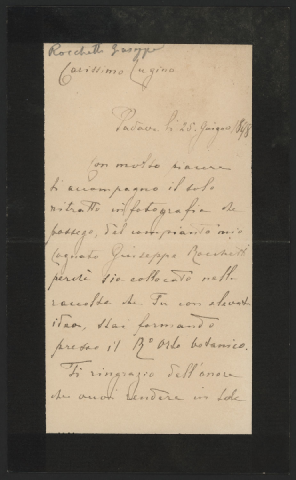 Rocchetti Giuseppe
Carissimo Cugino
Padova li 25 Giugno, 1898
Con molto piacere
ti accompagno il solo
ritratto in fotografia che
posseggo, del compianto mio
Cognato Giuseppe Rocchetti
perchè sia collocato nella
raccolta che Tu con elevata
idea, stai formando
presso il Rº Orto botanico.
Ti ringrazio dell'onore
che vuoi rendere in tale